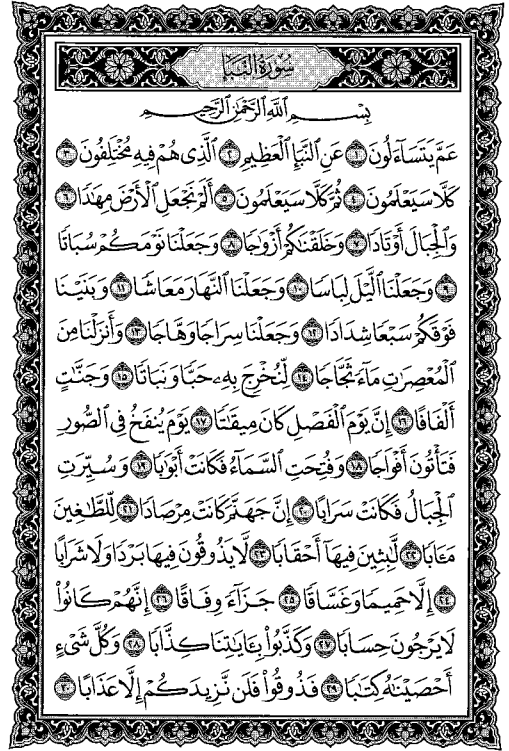 سُورَةُ النَّبَإِ
بِسْمِ ٱللَّهِ ٱلرَّحْمَٰنِ ٱلرَّحِيمِ
عَمَّ يَتَسَآءَلُونَ ۝١ عَنِ ٱلنَّبَإِ ٱلْعَظِيمِ ۝٢ ٱلَّذِى هُمْ فِيهِ مُخْتَلِفُونَ ۝٣
كَلَّا سَيَعْلَمُونَ ۝٤ ثُمَّ كَلَّا سَيَعْلَمُونَ ۝٥ أَلَمْ نَجْعَلِ ٱلْأَرْضَ مِهَٰدًا ۝٦
وَٱلْجِبَالَ أَوْتَادًا ۝٧ وَخَلَقْنَٰكُمْ أَزْوَٰجًا ۝٨ وَجَعَلْنَا نَوْمَكُمْ سُبَاتًا
۝٩ وَجَعَلْنَا ٱلَّيْلَ لِبَاسًا ۝١٠ وَجَعَلْنَا ٱلنَّهَارَ مَعَاشًا ۝١١ وَبَنَيْنَا
فَوْقَكُمْ سَبْعًا شِدَادًا ۝١٢ وَجَعَلْنَا سِرَاجًا وَهَّاجًا ۝١٣ وَأَنزَلْنَا مِنَ
ٱلْمُعْصِرَٰتِ مَآءً ثَجَّاجًا ۝١٤ لِّنُخْرِجَ بِهِۦ حَبًّا وَنَبَاتًا ۝١٥ وَجَنَّٰتٍ
أَلْفَافًا ۝١٦ إِنَّ يَوْمَ ٱلْفَصْلِ كَانَ مِيقَٰتًا ۝١٧ يَوْمَ يُنفَخُ فِى ٱلصُّورِ
فَتَأْتُونَ أَفْوَاجًا ۝١٨ وَفُتِحَتِ ٱلسَّمَآءُ فَكَانَتْ أَبْوَٰبًا ۝١٩ وَسُيِّرَتِ
ٱلْجِبَالُ فَكَانَتْ سَرَابًا ۝٢٠ إِنَّ جَهَنَّمَ كَانَتْ مِرْصَادًا ۝٢١ لِّلطَّٰغِينَ
مَـَٔابًا ۝٢٢ لَّٰبِثِينَ فِيهَآ أَحْقَابًا ۝٢٣ لَّا يَذُوقُونَ فِيهَا بَرْدًا وَلَا شَرَابًا
۝٢٤ إِلَّا حَمِيمًا وَغَسَّاقًا ۝٢٥ جَزَآءً وِفَاقًا ۝٢٦ إِنَّهُمْ كَانُوا۟
لَا يَرْجُونَ حِسَابًا ۝٢٧ وَكَذَّبُوا۟ بِـَٔايَٰتِنَا كِذَّابًا ۝٢٨ وَكُلَّ شَىْءٍ
أَحْصَيْنَٰهُ كِتَٰبًا ۝٢٩ فَذُوقُوا۟ فَلَن نَّزِيدَكُمْ إِلَّا عَذَابًا ۝٣٠